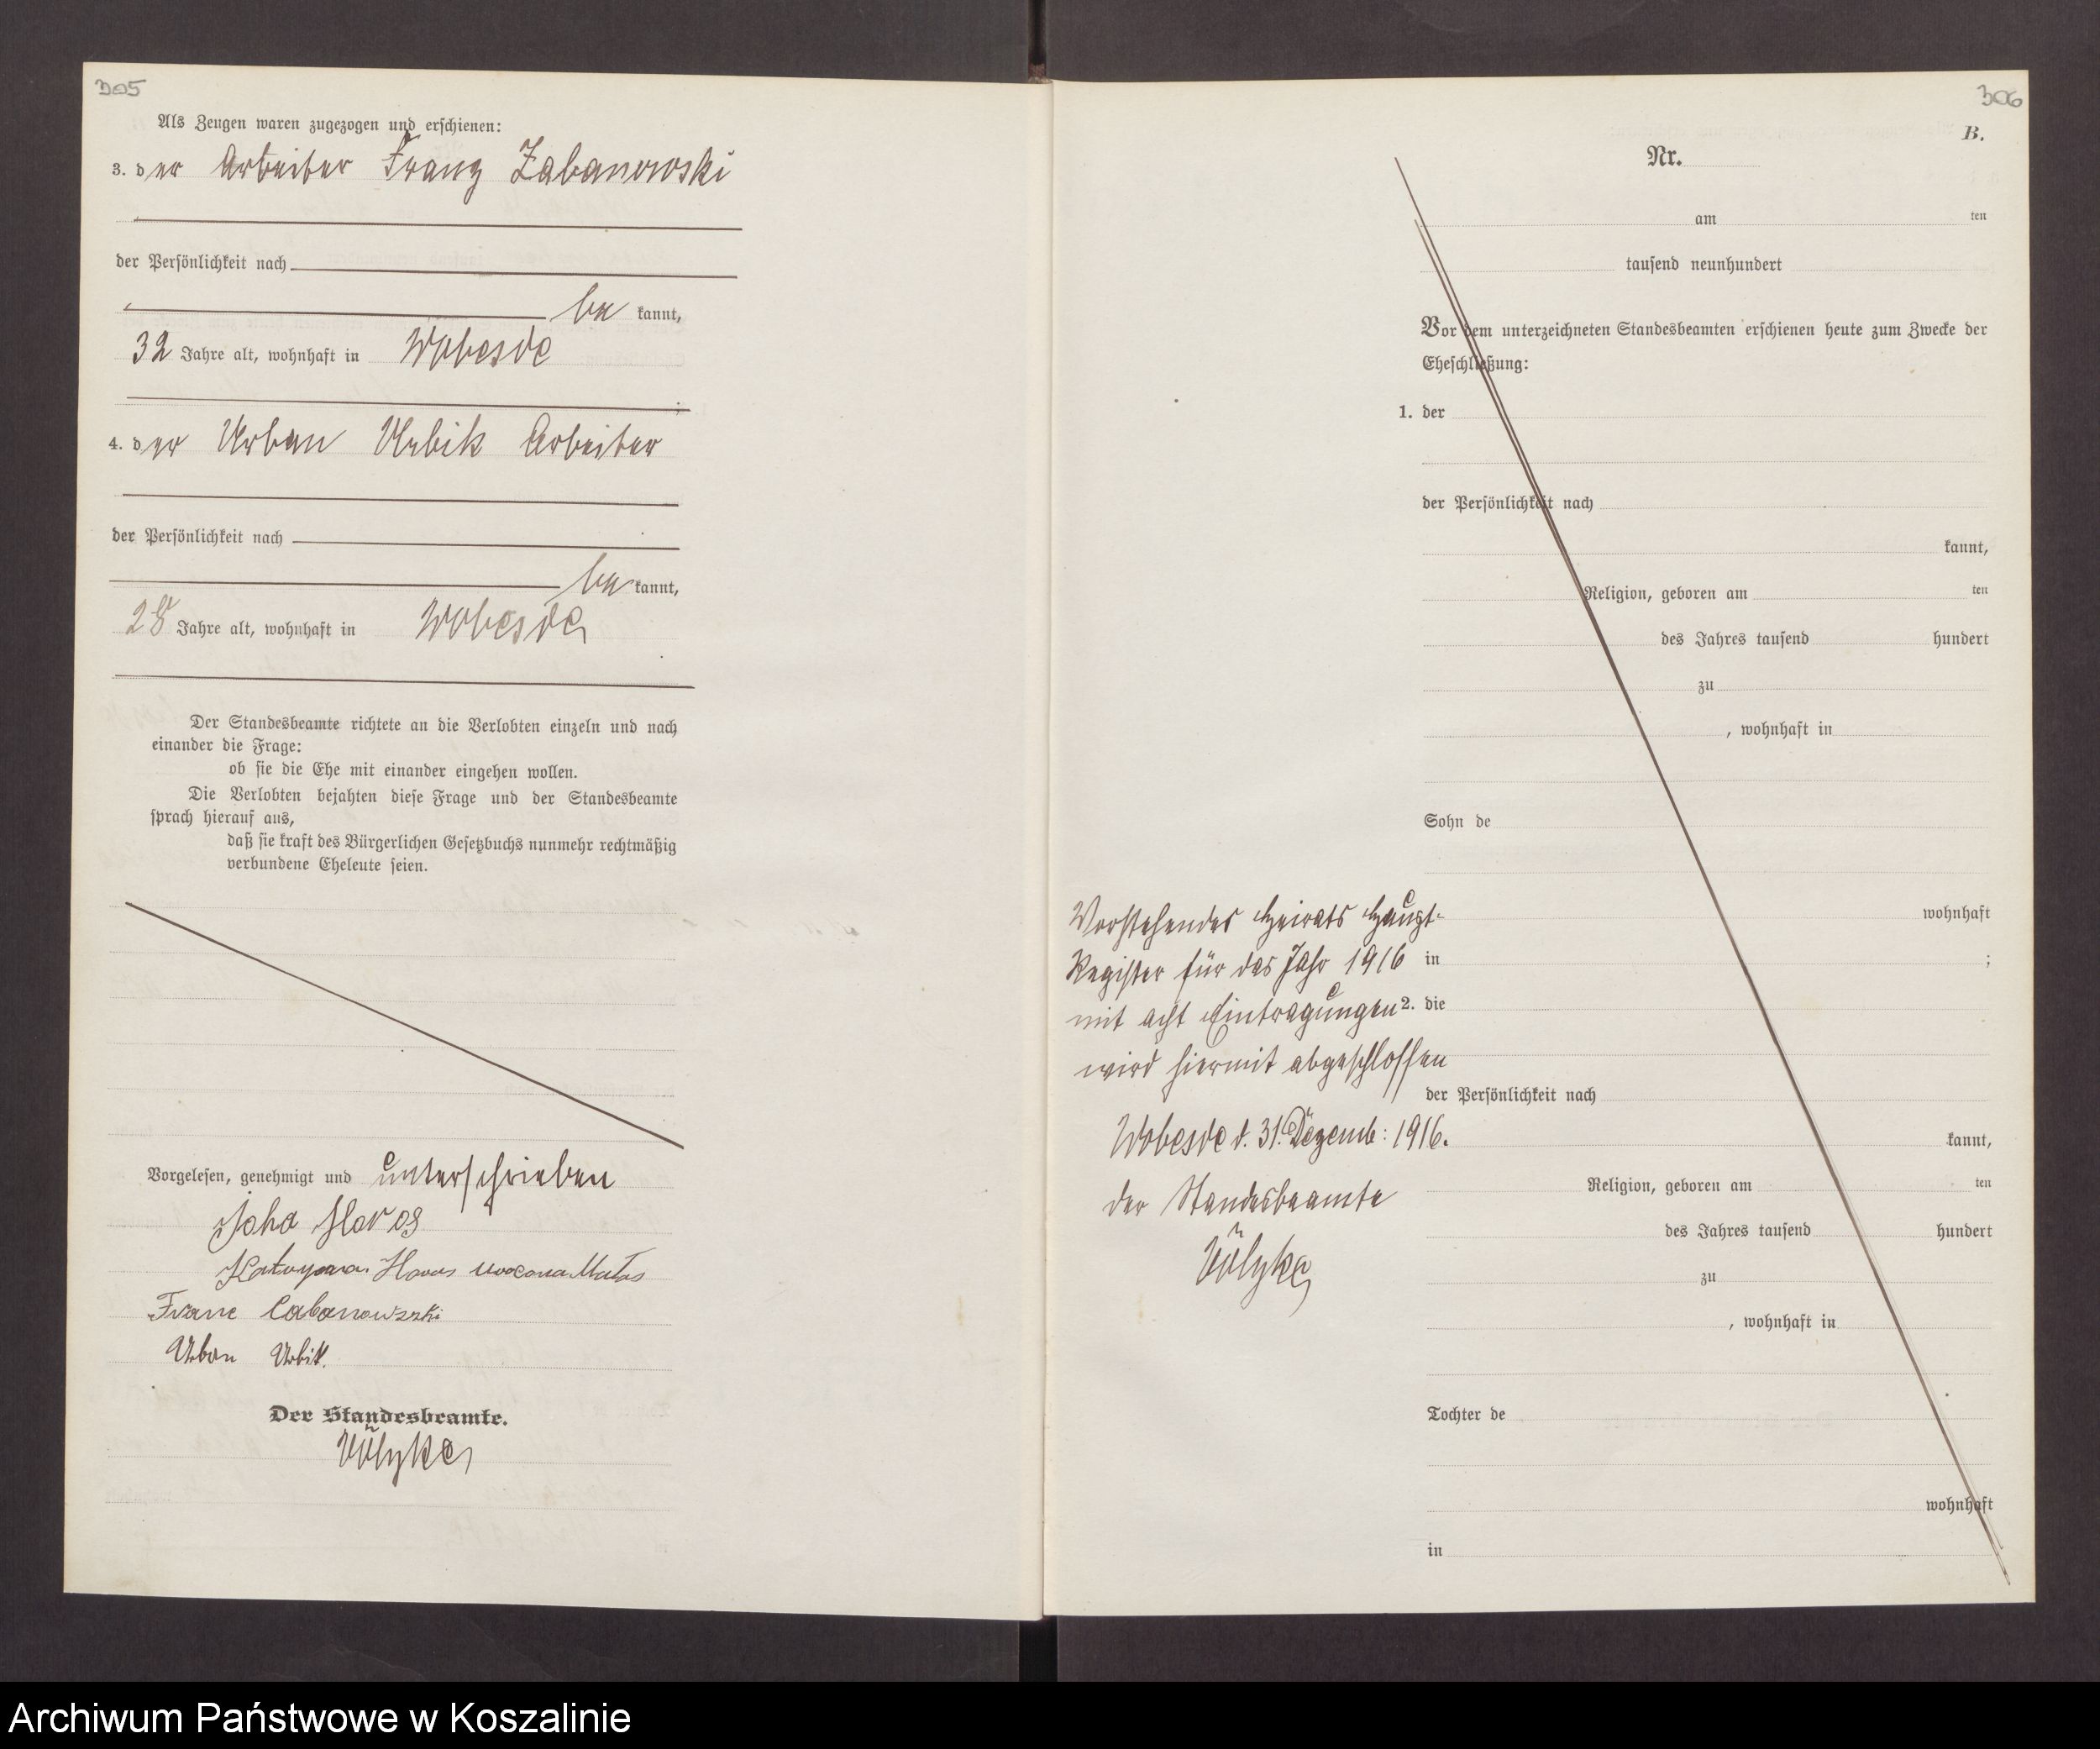 305
Als Zeugen waren zugezogen und erschienen:
3. der Arbeiter Franz Zabanowski
der Persönlichkeit nach
be kannt,
32 Jahre alt, wohnhaft in Wobesde
4. der Urban Urbik Arbeiter
der Persönlichkeit nach
be kannt,
28 Jahre alt, wohnhaft in Wobesde
Der Standesbeamte richtete an die Verlobten einzeln und nach
einander die Frage:
ob sie die Ehe mit einander eingehen wollen.
Die Verlobten bejahten diese Frage und der Standesbeamte
sprach hierauf aus,
daß sie kraft des Bürgerlichen Gesetzbuchs nunmehr rechtmäßig
verbundene Eheleute seien.
Vorgelesen, genehmigt und unterschrieben
Franc Cabanowszki
Urban Urbik.
Der Standesbeamte.
306
B.
Nr.
am ten
tausend neunhundert
Vor dem unterzeichneten Standesbeamten erschienen heute zum Zwecke der
Eheschließung:
1. der
der Persönlichkeit nach
kannt,
Religion, geboren am ten
des Jahres tausend hundert
zu
, wohnhaft in
Sohn de
wohnhaft
in ;
2. die
der Persönlichkeit nach
kannt,
Religion, geboren am ten
des Jahres tausend hundert
zu
, wohnhaft in
Tochter de
wohnhaft
in
Vorstehendes Heirats Haupt-
Register für das Jahr 1916
mit acht Eintragungen
wird hiermit abgeschlossen
Wobesde d. 31. Dezemb: 1916.
der Standesbeamte
Archiwum Państwowe w Koszalinie